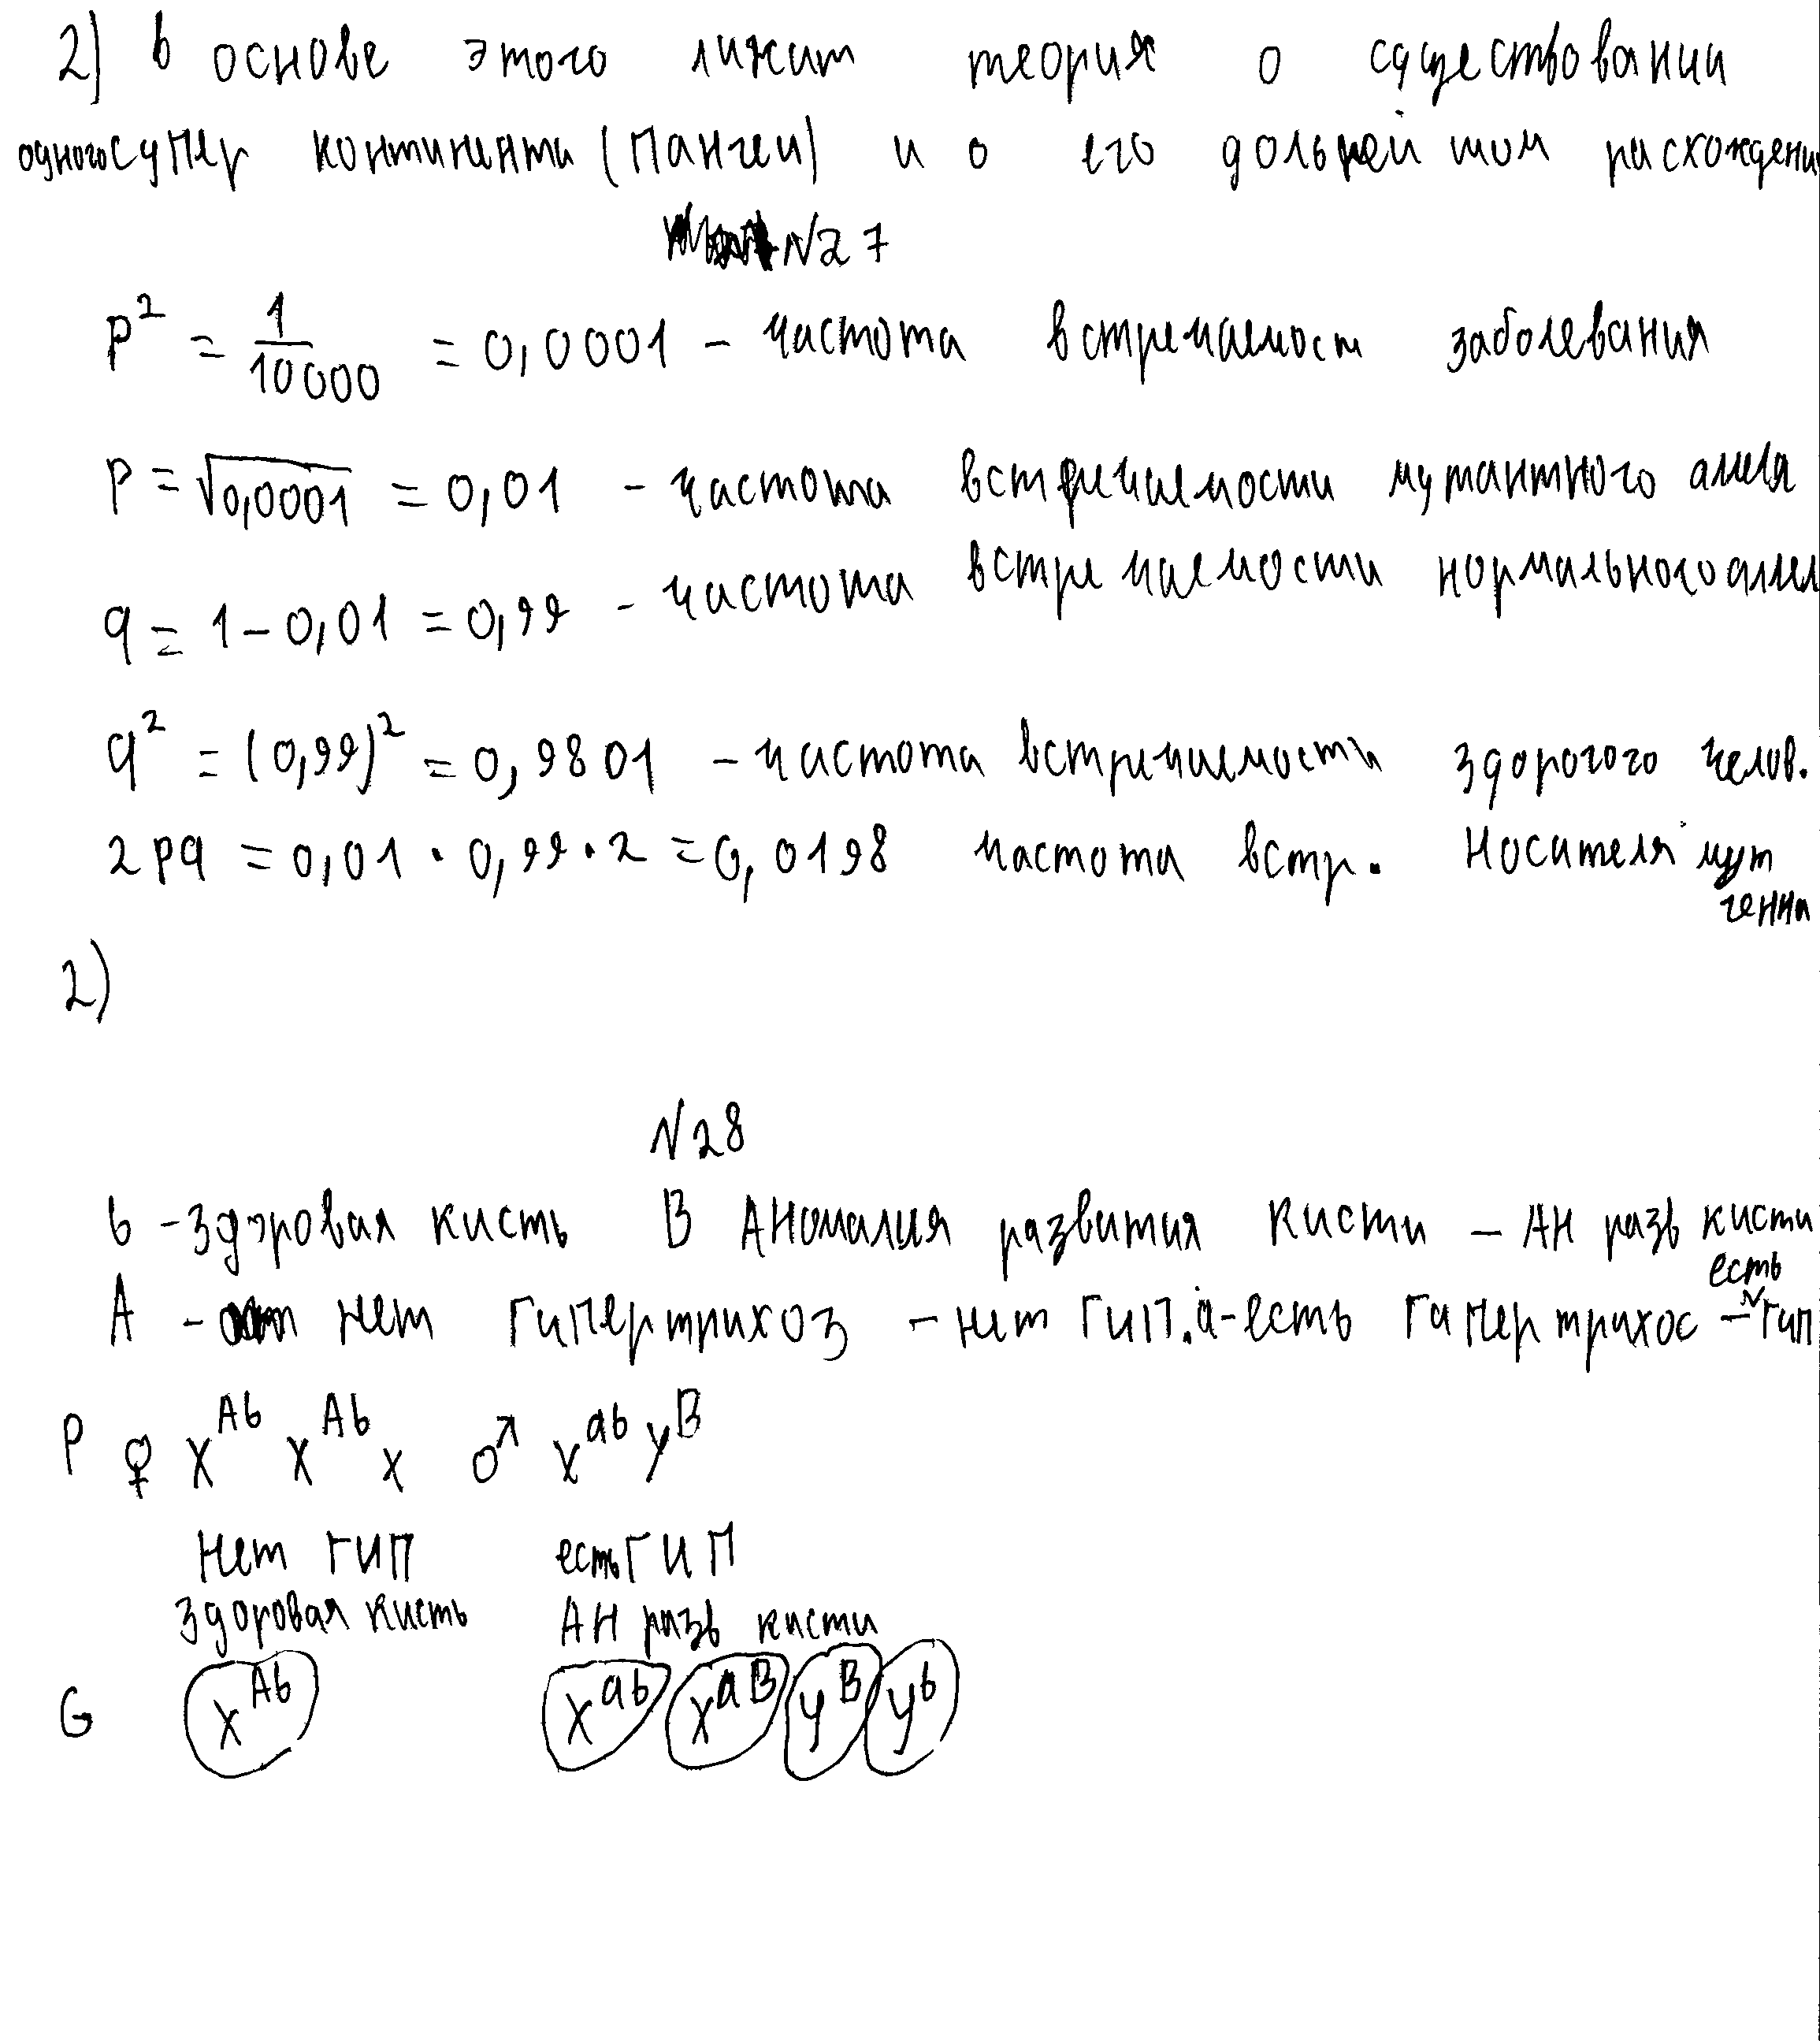 2) в основе этого лижит теория о существовании
одного супер континента (Пангеи) и о его дольнейшом расхождени
N27
p² = 1/10000 = 0,0001 - частота встречаемост заболевания
p = √0,0001 = 0,01 - частота встречаемости мутантного аллеля
q = 1 - 0,01 = 0,99 - частота встречаемости нормального аллел
q² = (0,99)² = 0,9801 - частота встречаемость здорогого челов.
2pq = 0,01 · 0,99 · 2 = 0,0198 частота встр. носителя мут
генна
2)
N28
b - здоровая кисть B Аномалия развития кисти - АН разв кисти
есть
A - нет гипертрихоз - нет ГИП. a - есть гипертрихос - ГИП
P ♀ X^Ab X^Ab x ♂ X^ab Y^B
нет ГИП есть ГИП
здоровая кисть АН разв кисти
G X^Ab X^ab X^aB Y^B Y^b